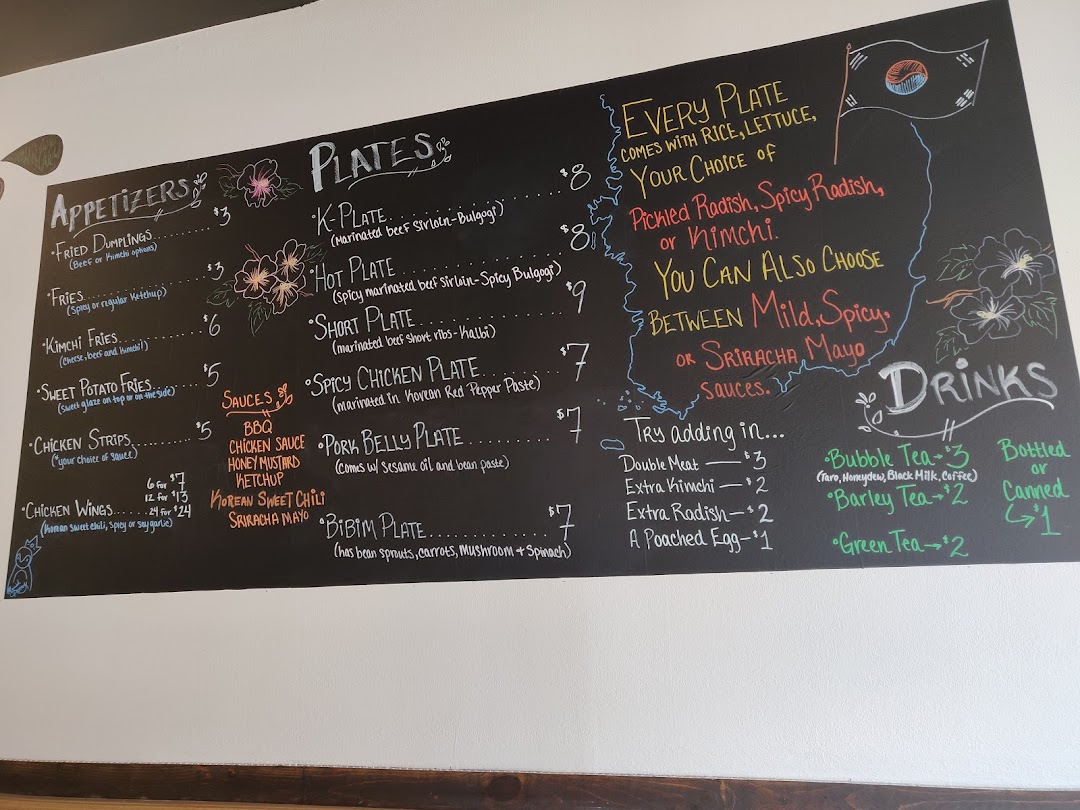 APPETIZERS
•FRIED DUMPLINGS.......... $3
(Beef or Kimchi options)
•FRIES.......... $3
(Spicy or regular Ketchup)
•KIMCHI FRIES.......... $6
(cheese, beef and kimchi)
•SWEET POTATO FRIES.......... $5
(sweet glaze on top or on the side)
•CHICKEN STRIPS.......... $5
(*your choice of sauce)
6 for $7
12 for $13
•CHICKEN WINGS..... 24 for $24
(Korean sweet chili, spicy or soy garlic)
SAUCES
BBQ
CHICKEN SAUCE
HONEY MUSTARD
KETCHUP
KOREAN SWEET CHILI
SRIRACHA MAYO
PLATES
•K-PLATE.......... $8
(Marinated beef sirloin-Bulgogi)
•HOT PLATE.......... $8
(spicy marinated beef sirloin-Spicy Bulgogi)
•SHORT PLATE.......... $9
(marinated beef short ribs-Kalbi)
•SPICY CHICKEN PLATE.......... $7
(marinated in Korean Red Pepper Paste)
•PORK BELLY PLATE.......... $7
(comes w/ sesame oil and bean paste)
•BIBIM PLATE.......... $7
(has bean sprouts, carrots, Mushroom + Spinach)
EVERY PLATE
COMES WITH RICE, LETTUCE,
YOUR CHOICE of
Pickled Radish, Spicy Radish,
or Kimchi.
YOU CAN ALSO CHOOSE
BETWEEN Mild, Spicy,
OR SRIRACHA Mayo
sauces.
Try adding in...
Double Meat — $3
Extra Kimchi — $2
Extra Radish — $2
A Poached Egg — $1
DRINKS
•Bubble Tea→$3
(Taro, Honeydew, Black Milk, Coffee)
•Barley Tea→$2
•Green Tea→$2
Bottled
or
Canned
↳$1